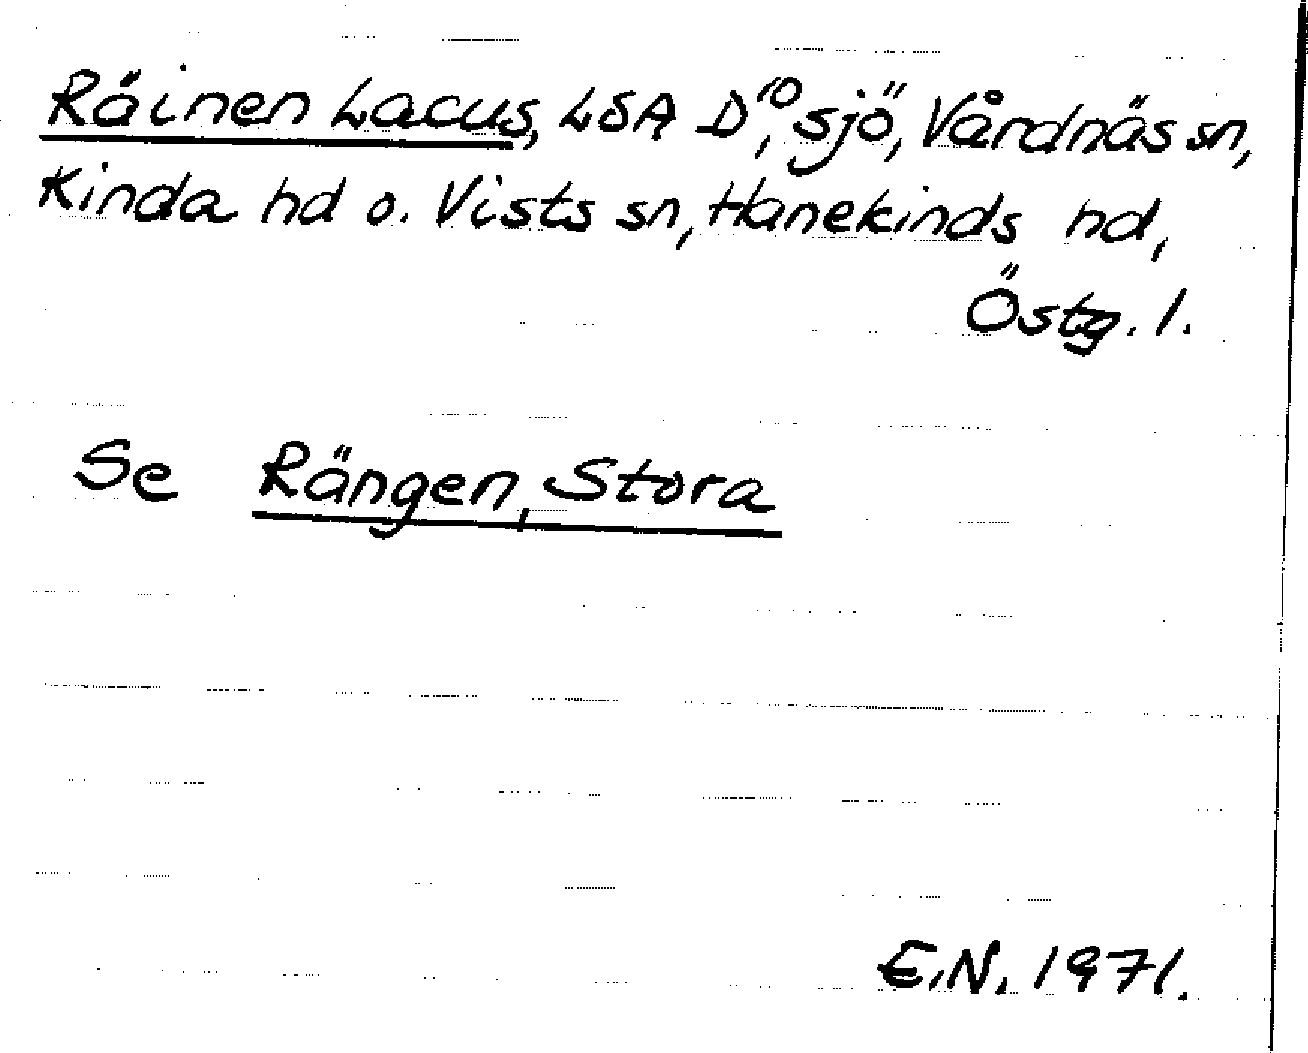 Räinen Lacus, LSA D10, sjö, Vårdnäs sn,
Kinda hd o. Vists sn, Hanekinds hd,
Östg. l.
Se Rängen, Stora
E.N. 1971.